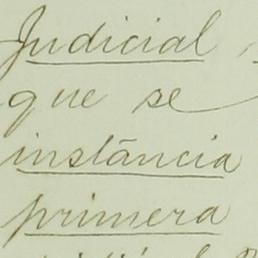 Judicial
que se
instância
primera